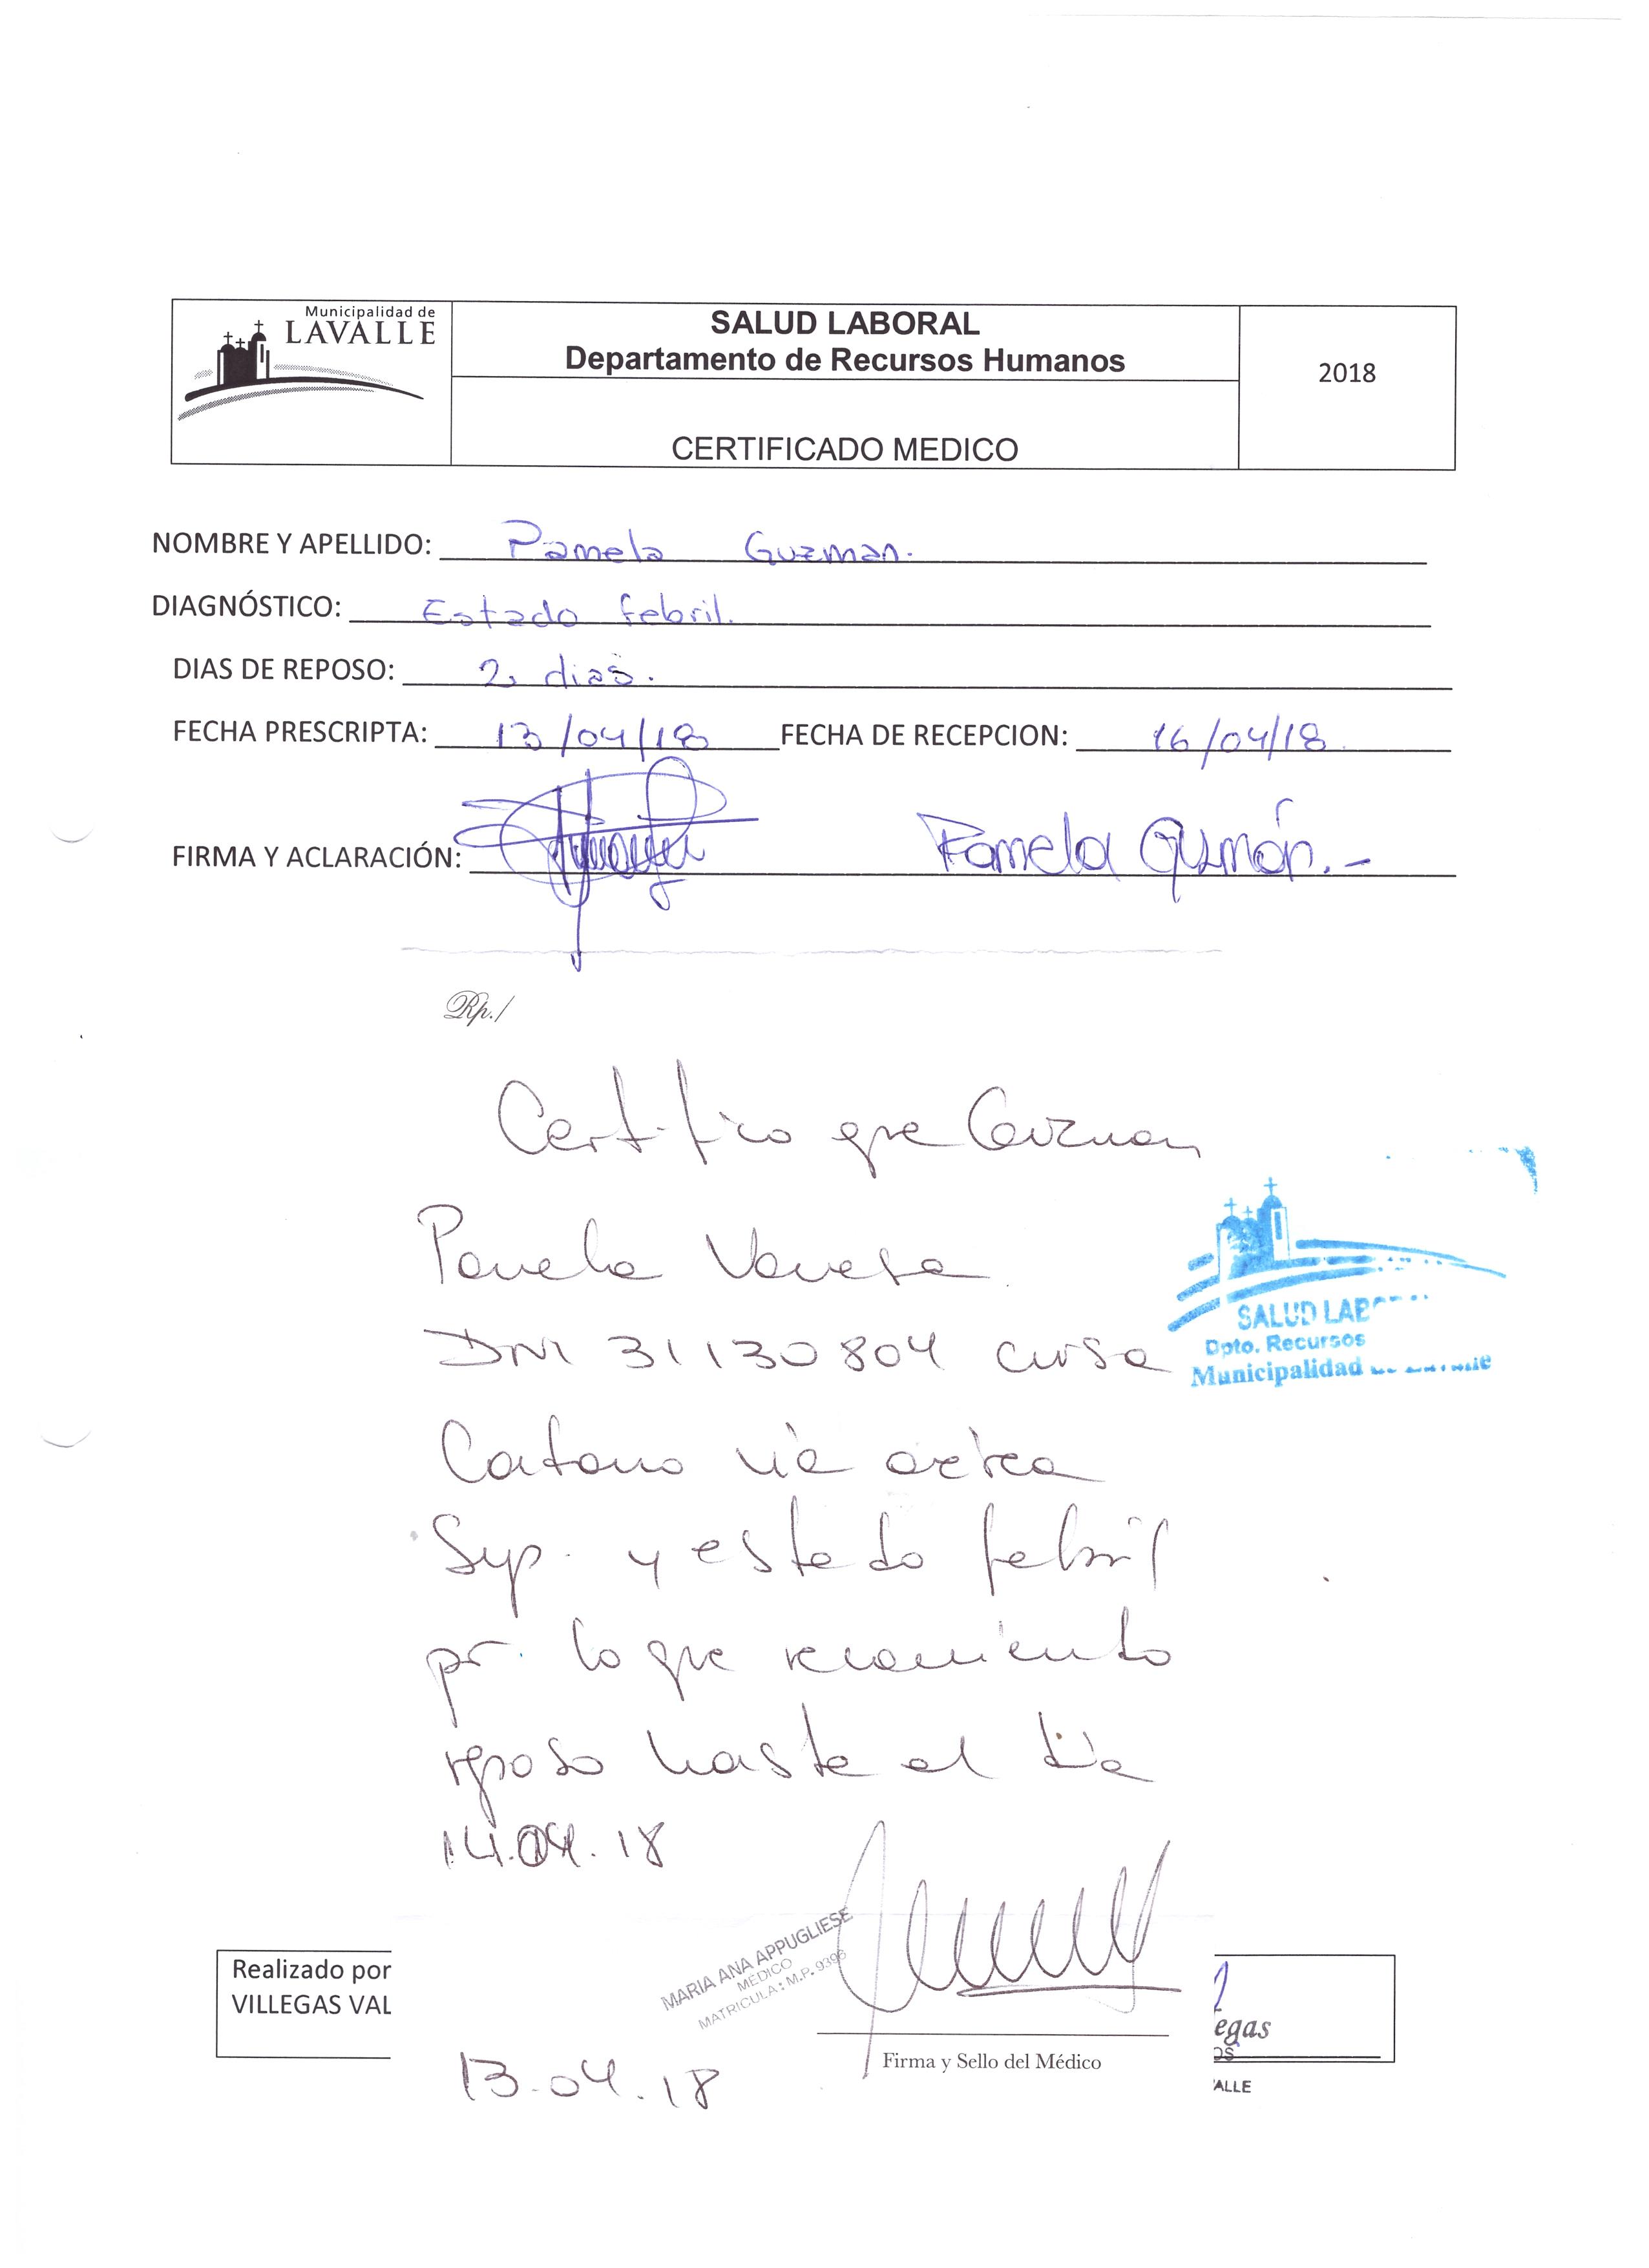 Municipalidad de
LAVALLE
SALUD LABORAL
Departamento de Recursos Humanos
2018
CERTIFICADO MEDICO
NOMBRE Y APELLIDO: Pamela Guzman.
DIAGNÓSTICO: Estado febril.
DIAS DE REPOSO: 2 dias.
FECHA PRESCRIPTA: 13/04/18 FECHA DE RECEPCION: 16/04/18
FIRMA Y ACLARACIÓN: Pamela Guzmán.-
Rp./
Certifico que Guzman
Pamela Vanesa
DNI 31130804 cursa
Catarro vía aérea
Sup. y estado febril
por lo que recomiendo
reposo hasta el día
14.04.18
SALUD LAB
Dpto. Recursos
Municipalidad
MARIA ANA APPUGLIESE
MEDICO
MATRICULA: M.P. 9396
Firma y Sello del Médico
13.04.18
Realizado por
VILLEGAS VAL
egas
OS
ALLE